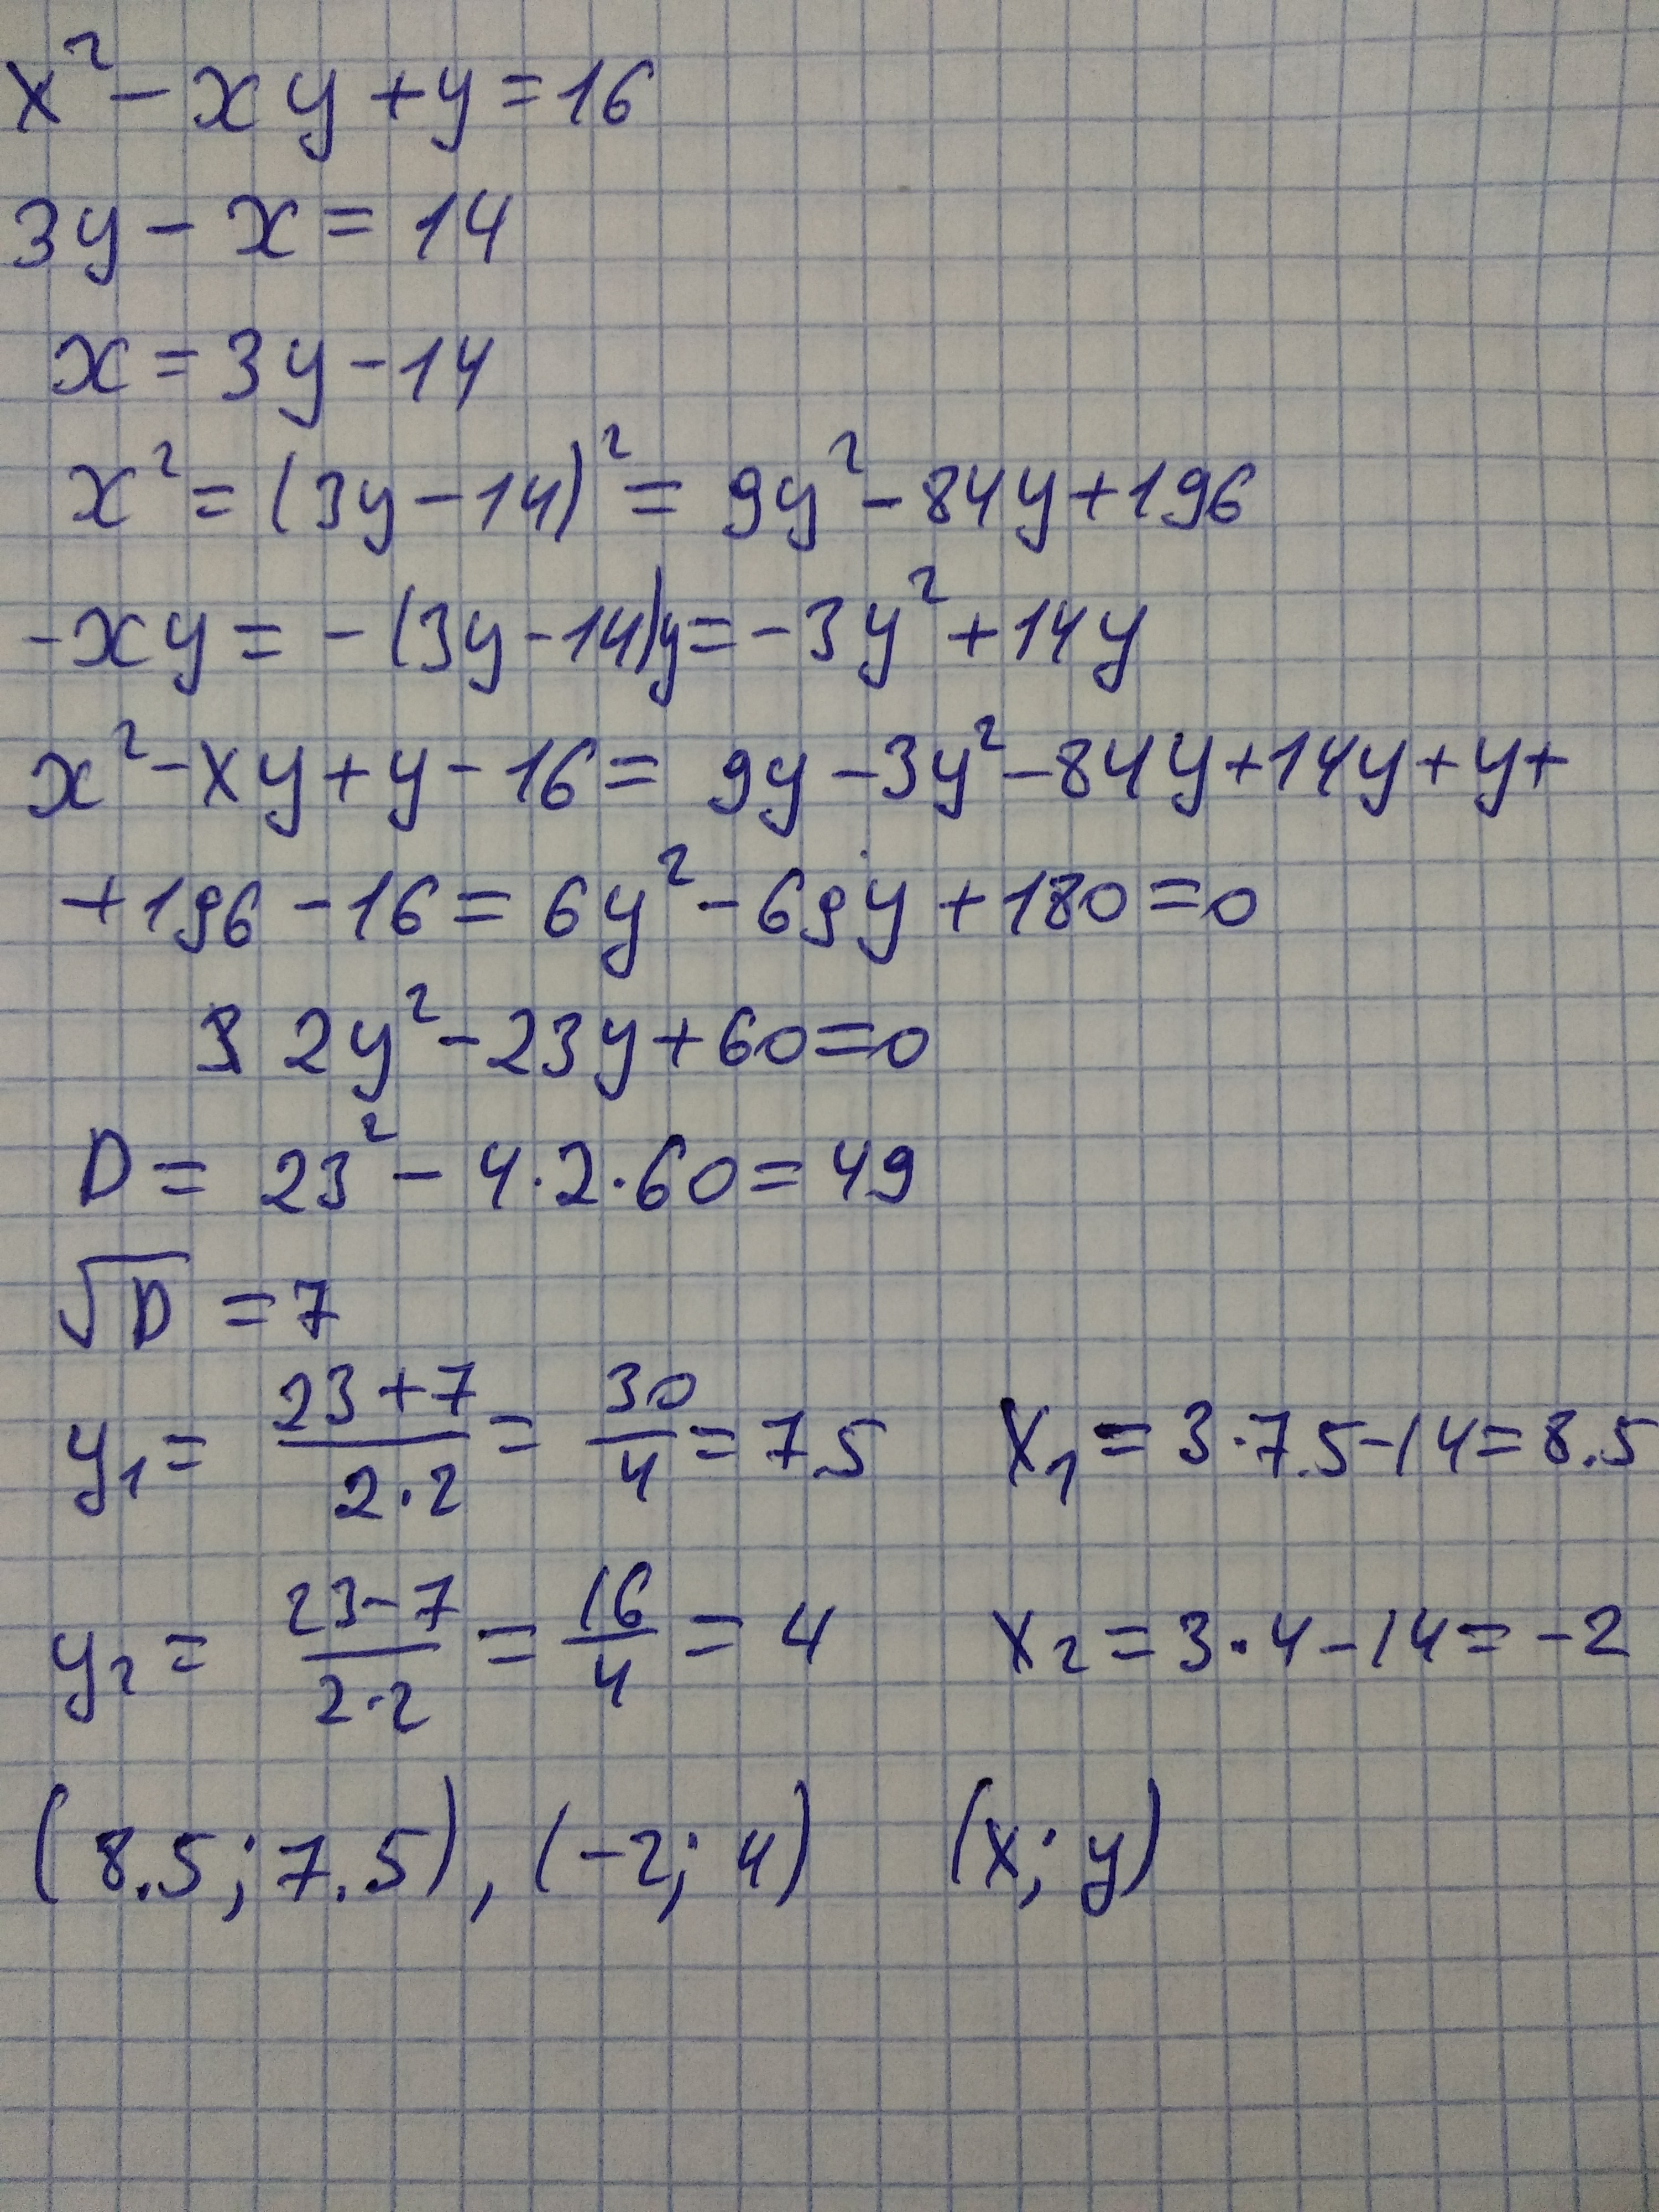 x² - xy + y = 16
3y - x = 14
x = 3y - 14
x² = (3y - 14)² = 9y² - 84y + 196
-xy = -(3y - 14)y = -3y² + 14y
x² - xy + y - 16 = 9y - 3y² - 84y + 14y + y +
+ 196 - 16 = 6y² - 69y + 180 = 0
2y² - 23y + 60 = 0
D = 23² - 4·2·60 = 49
√D = 7
y₁ = (23+7)/(2·2) = 30/4 = 7.5 x₁ = 3·7.5 - 14 = 8.5
y₂ = (23-7)/(2·2) = 16/4 = 4 x₂ = 3·4 - 14 = -2
(8.5; 7.5), (-2; 4) (x; y)